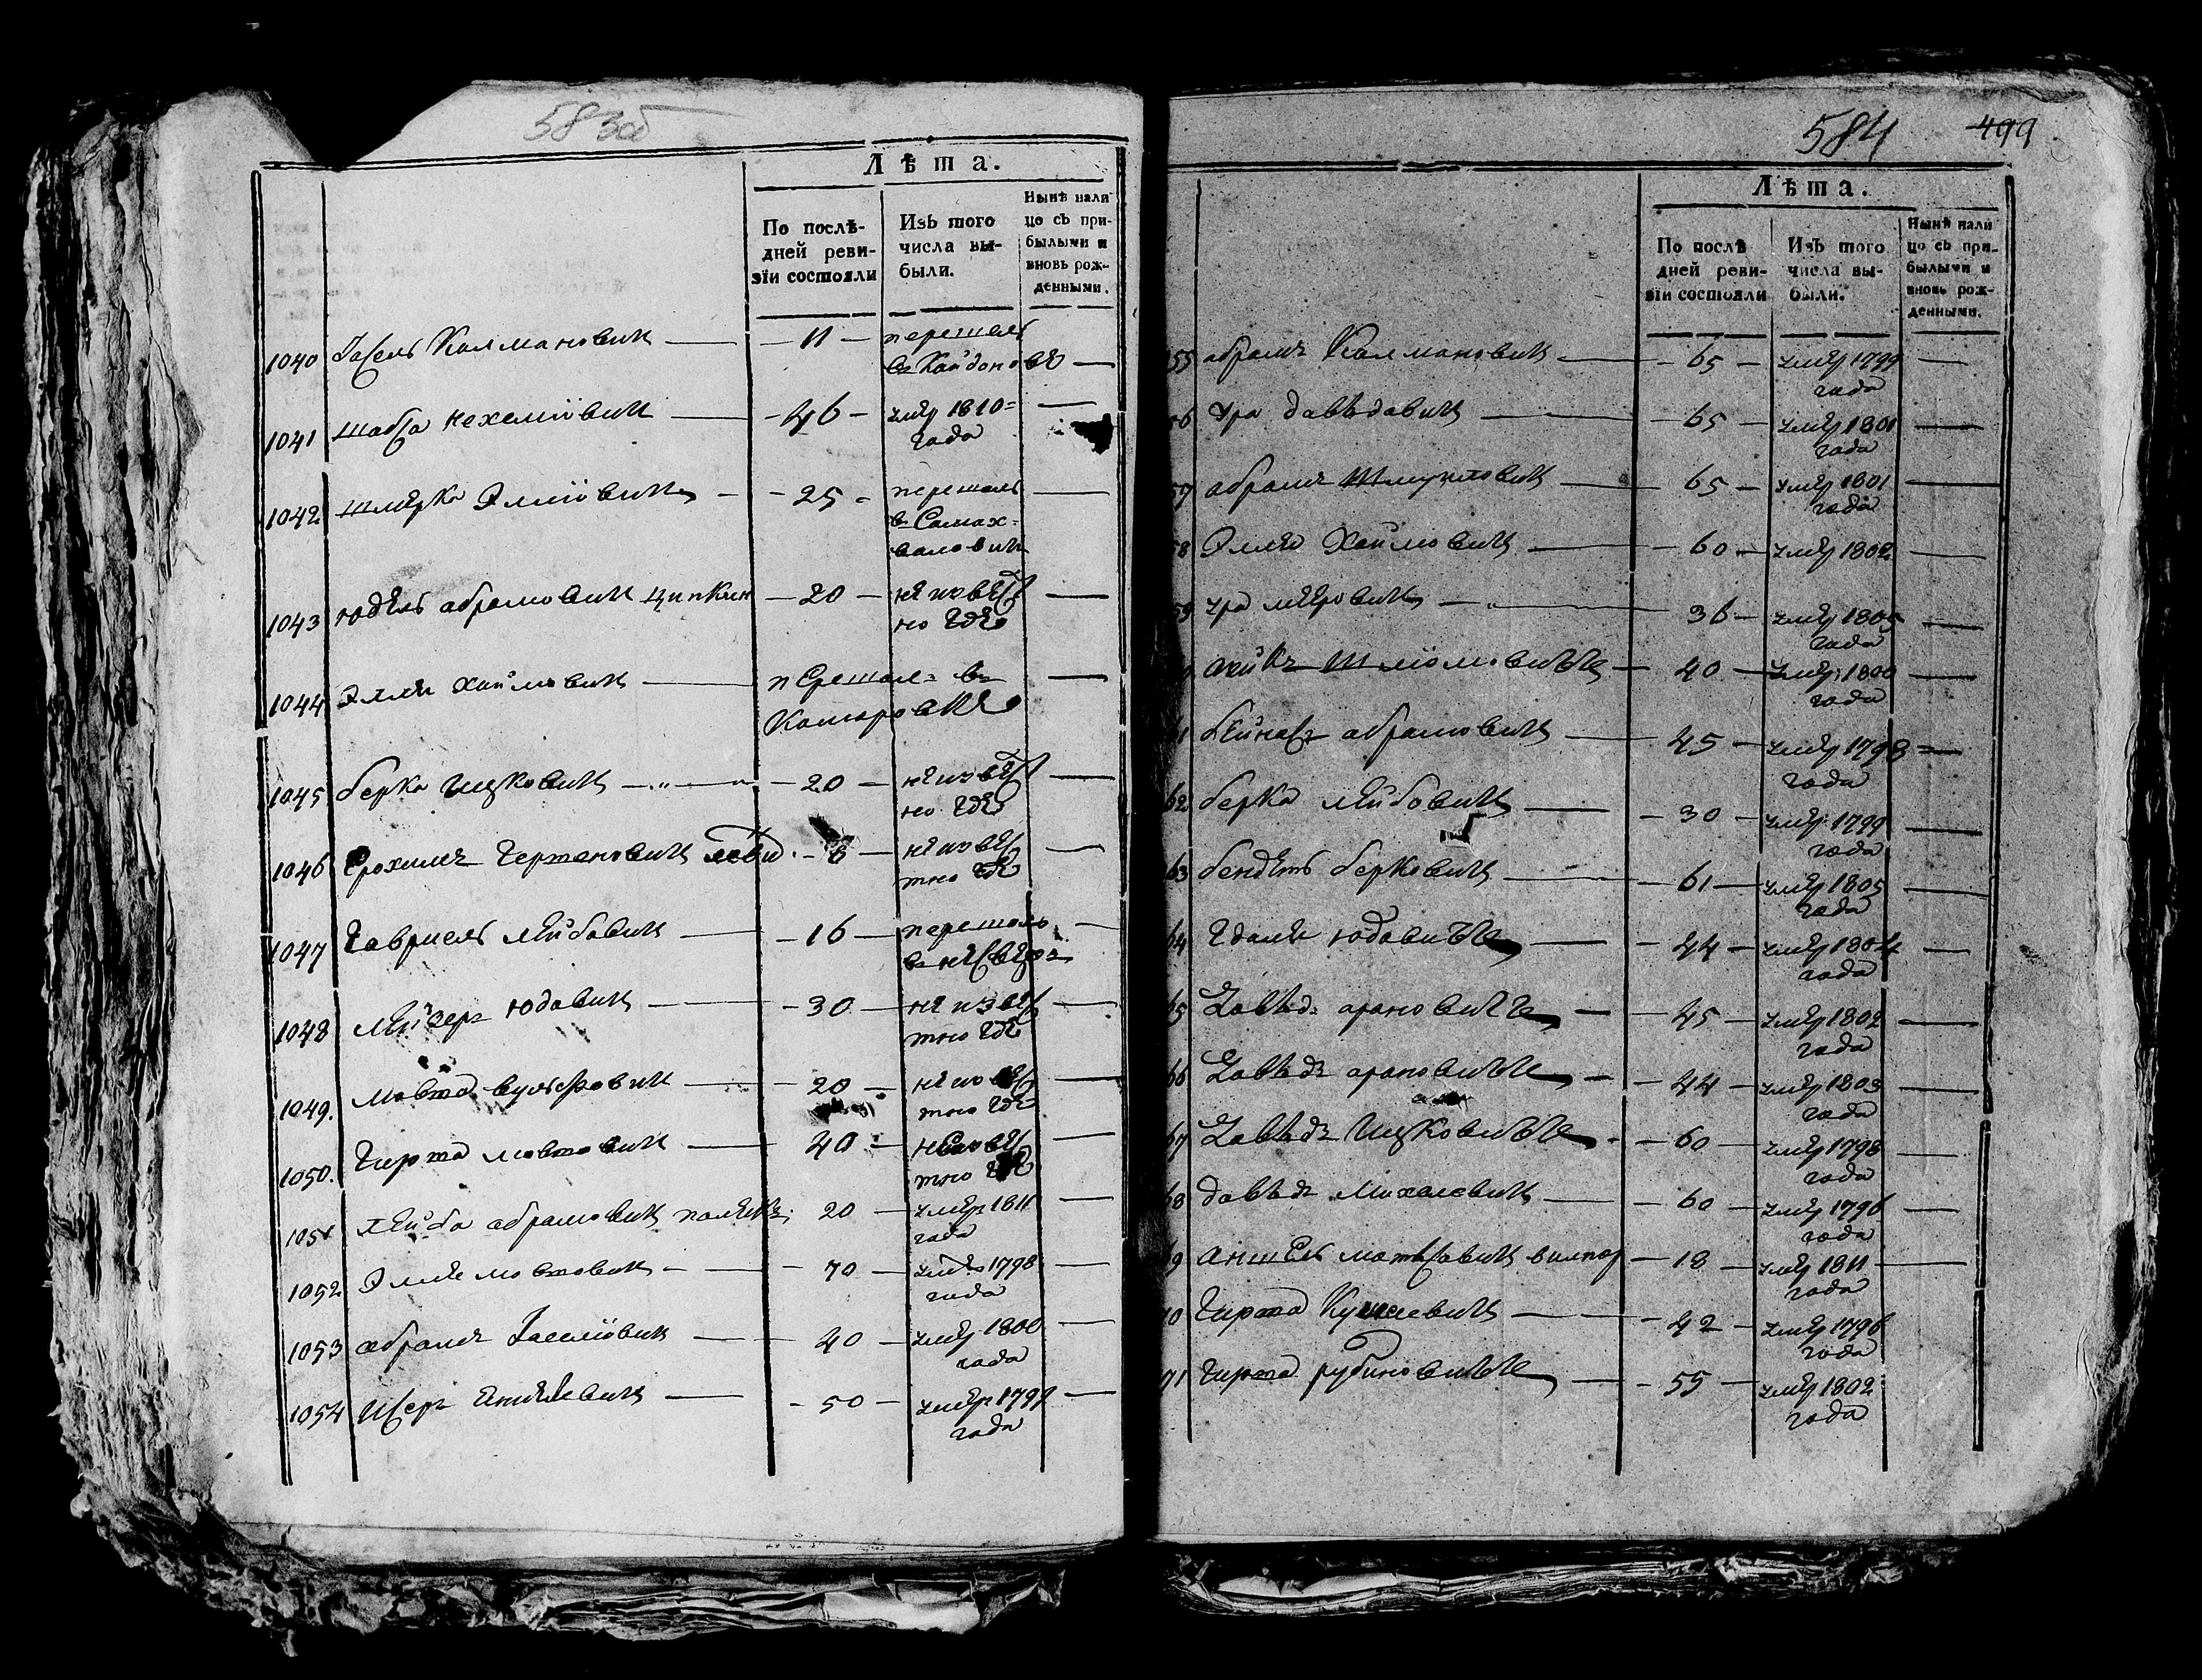 583об
Лѣта.
По послѣ-
дней реви-
зіи состояли
Изъ того
числа вы-
были.
Нынѣ нали
цо съ при-
былыми и
вновь рож-
денными.
1040 Иосель Калмановичъ — 11 — перешелъ
в Койдоново —
1041 шабса нехеміовичъ — 46 — умер 1810
года
1042 шмерка Эліовичъ — 25 — перешелъ
в Самах-
валовичи
1043 юдель абрамовичъ ципкин — 20 — неизвест
но где
1044 Элля хаимовичъ — перешел в
Комаровке
1045 берка ицковичъ — 20 — неизвест
но где
1046 Ерохимъ Гершеновичъ — 6 — неизвес
тно где
1047 Гавриель лейбовичъ — 16 — перешолъ
в
1048 лейзеръ юдовичъ — 30 — неизвес
тно где
1049. мовша вульфовичъ — 20 — неизвес
тно где
1050. Гирша мовшовичъ — 40 — неизвес
тно где
1051 лейба абрамовичъ — 20 — умер 1811
года
1052 Элля мовшовичъ — 70 — умер 1798
года
1053 абрамъ — 40 — умер 1800
года
1054 Исеръ — 50 — умер 1799
года
584 499
Лѣта.
По послѣ
дней реви-
зіи состояли
Изъ того
числа вы-
были.
Нынѣ нали
цо съ при-
былыми и
вновь рож-
денными.
55 абрамъ Калмановичъ — 65 — умер 1799
года
56 ура давыдовичъ — 65 — умер 1801
года
57 абрамъ Шмуиловичъ — 65 — умер 1801
года
58 Элля Хаимовичъ — 60 — умер 1802
59 ура мееровичъ — 36 — умер 1805
года
Шліомовичъ — 40 — умер 1800
года
61 бейнасъ абрамовичъ — 45 — умер 1798
года
62 берка лейбовичъ — 30 — умер 1799
года
63 бендетъ берковичъ — 61 — умер 1805
года
64 Гдаля юдовичъ — 44 — умер 1804
года
65 Давыдъ ароновичъ — 45 — умер 1802
года
66 Давыдъ ароновичъ — 44 — умер 1803
года
67 Давыдъ Ицковичъ — 60 — умер 1798
года
68 давыдъ Михелевичъ — 60 — умер 1796
года
69 аншель — 18 — умер 1811
года
70 Гирша — 42 — умер 1796
года
71 Гирша рубиновичъ — 55 — умер 1802
года